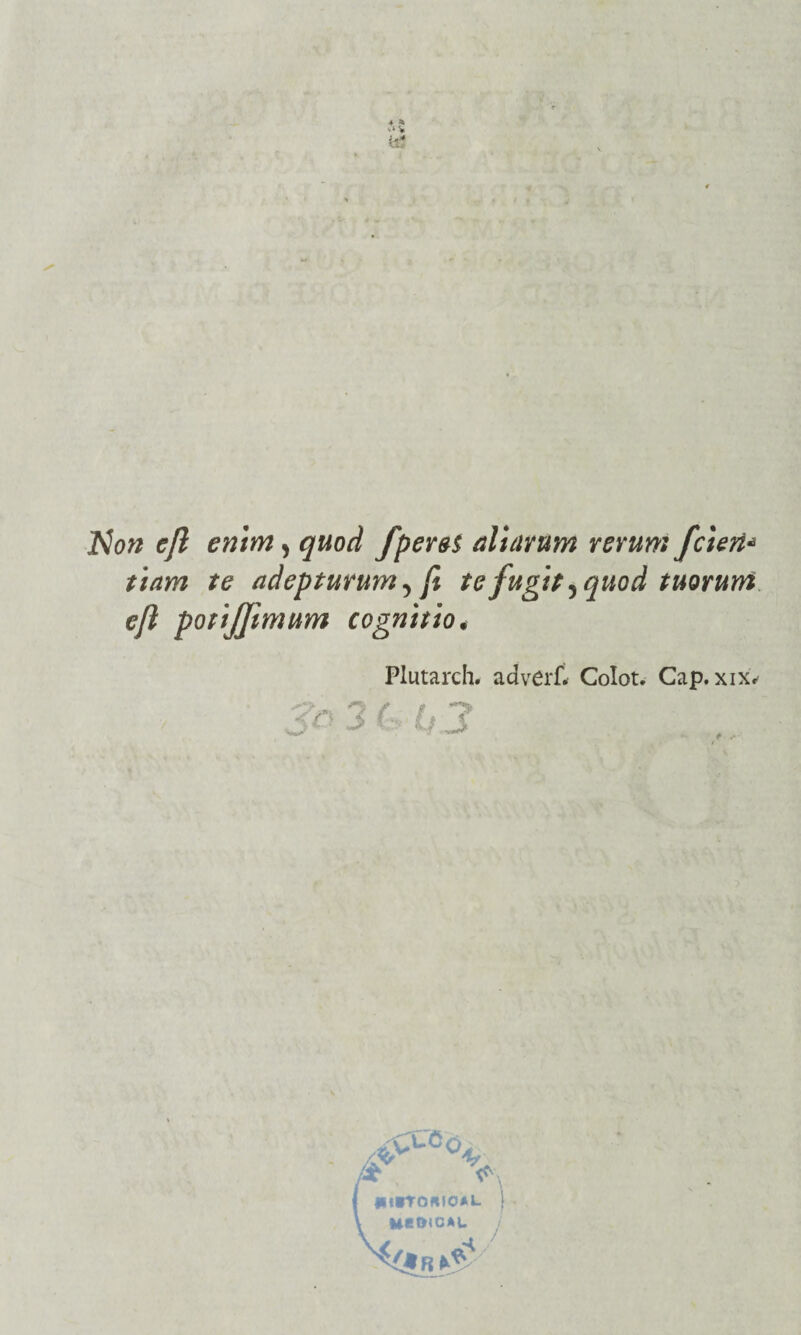 Non eſt enim, quod ſperes aliarum rerum ſcien-
tiam te adepturum, ſi te fugit, quod tuorum
eſt potiſſimum cognitio.
Plutarch. adverſ. Colot. Cap. XIX.
303643
WELLCOME
HISTORICAL
MEDICAL
LIBRARY